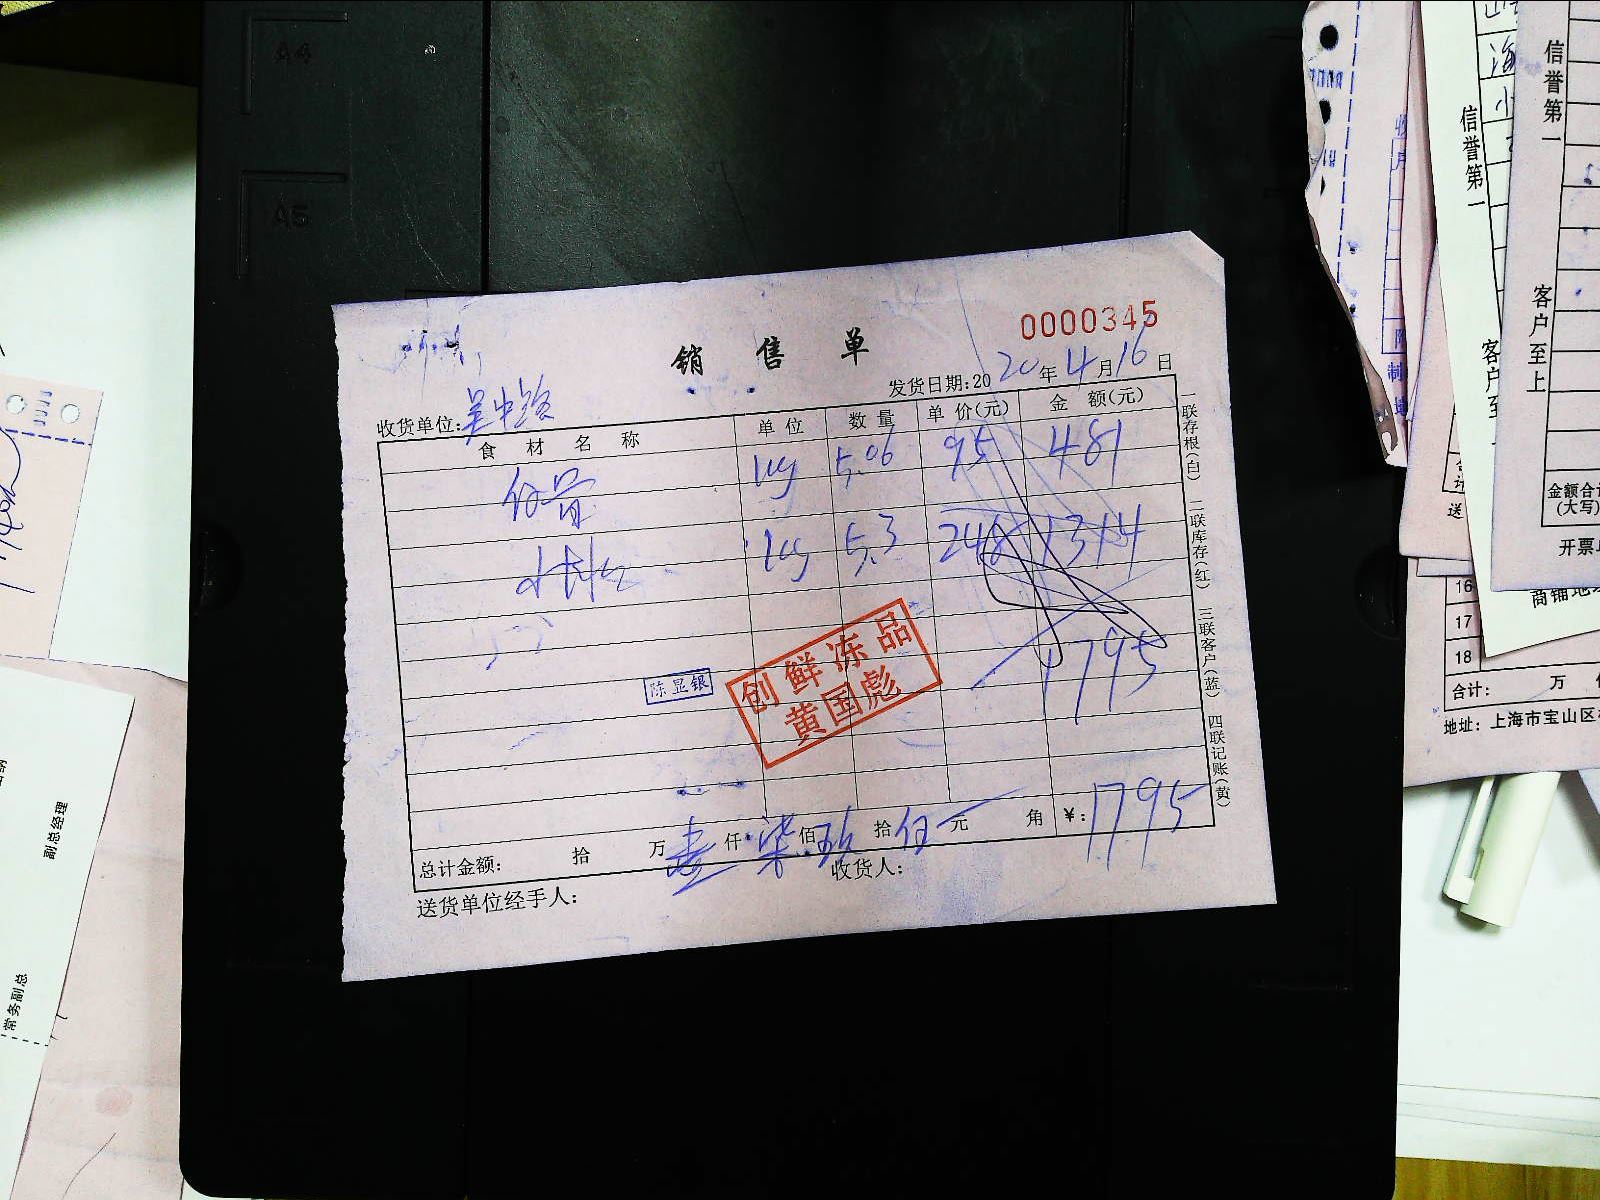 A4
A5
0000345
销售单
发货日期:2020年4月16日
收货单位:吴中路
食材名称 单位 数量 单价(元) 金额(元)
kg 5.06 95 481
kg 5.3 248 1314
1795
陈显银
创鲜冻品
黄国彪
总计金额: 拾 万壹仟柒佰玖拾伍元 角 ¥:1795
送货单位经手人: 收货人:
一联存根(白) 二联库存(红) 三联客户(蓝) 四联记账(黄)
副总经理
常务副总
信誉第一
客户至上
信誉第一
客户至
金额合计
(大写)
开票
16
17
18
合计: 万
地址: 上海市宝山区
商铺地